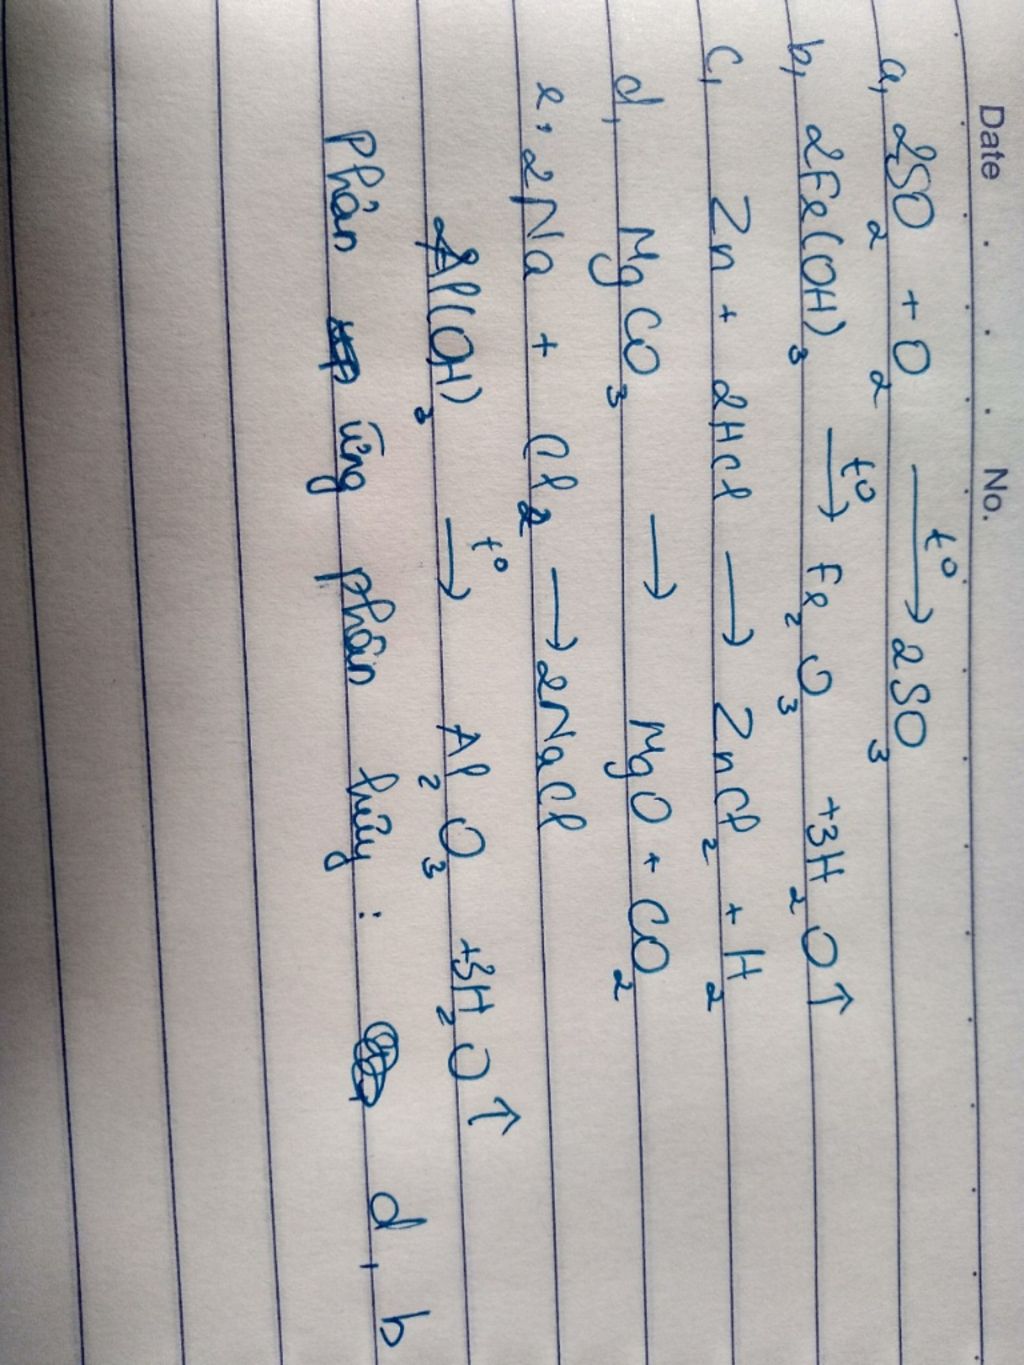 Date No.
a, 2SO₂ + O₂ —t⁰→ 2SO₃
b, 2Fe(OH)₃ —t⁰→ Fe₂O₃ +3H₂O↑
c, Zn + 2HCl → ZnCl₂ + H₂
d, MgCO₃ → MgO + CO₂
e, 2Na + Cl₂ → 2NaCl
2Al(OH)₃ —t⁰→ Al₂O₃ +3H₂O↑
Phản ứng phân hủy : d, b